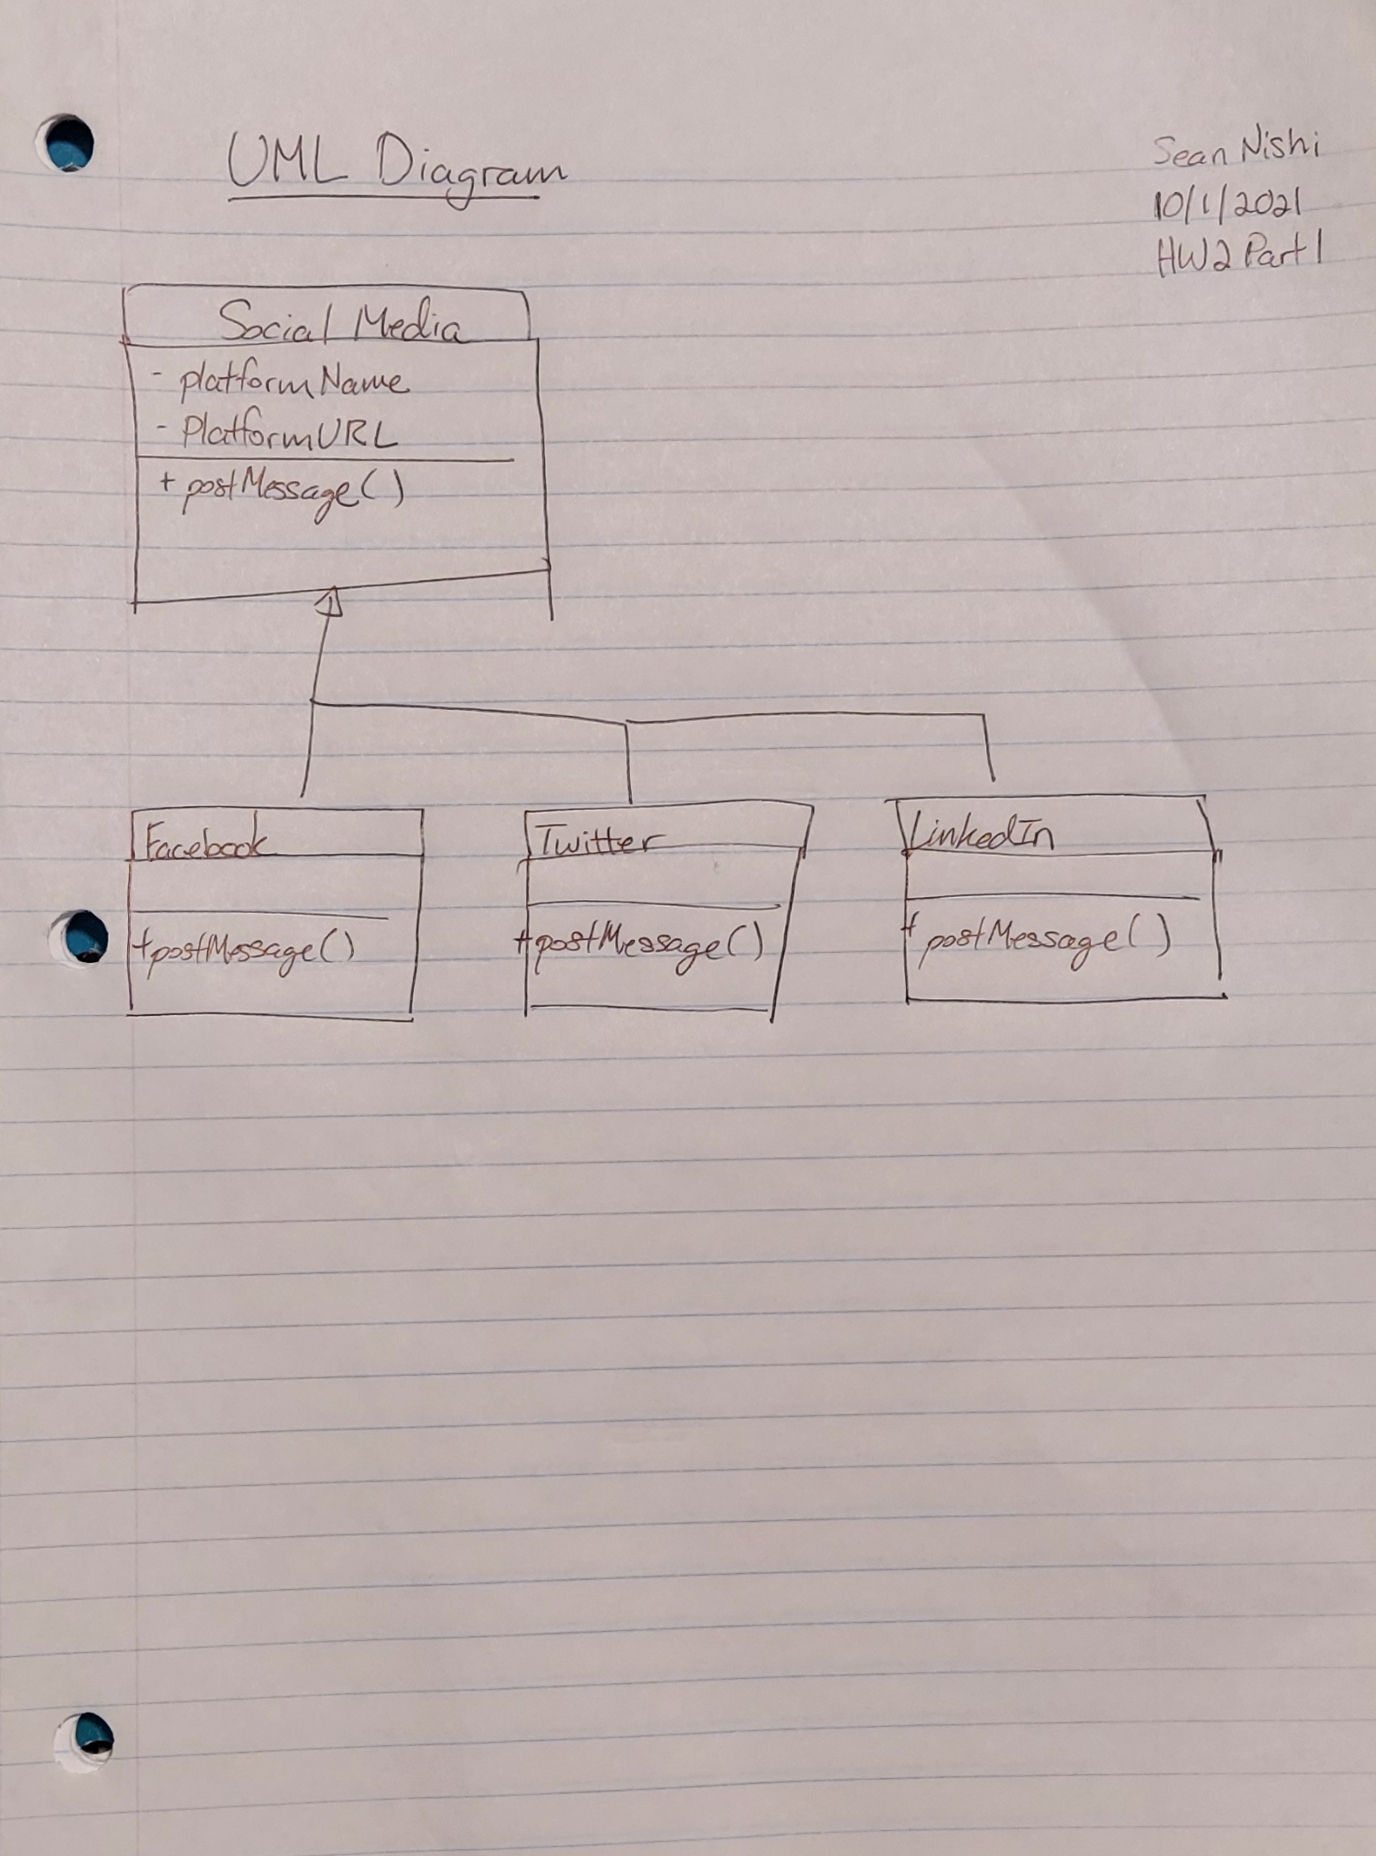 UML Diagram
Sean Nishi
10/1/2021
HW2 Part 1
Social Media
- platformName
- PlatformURL
+ postMessage()
Facebook
+postMessage()
Twitter
+postMessage()
LinkedIn
+ postMessage()